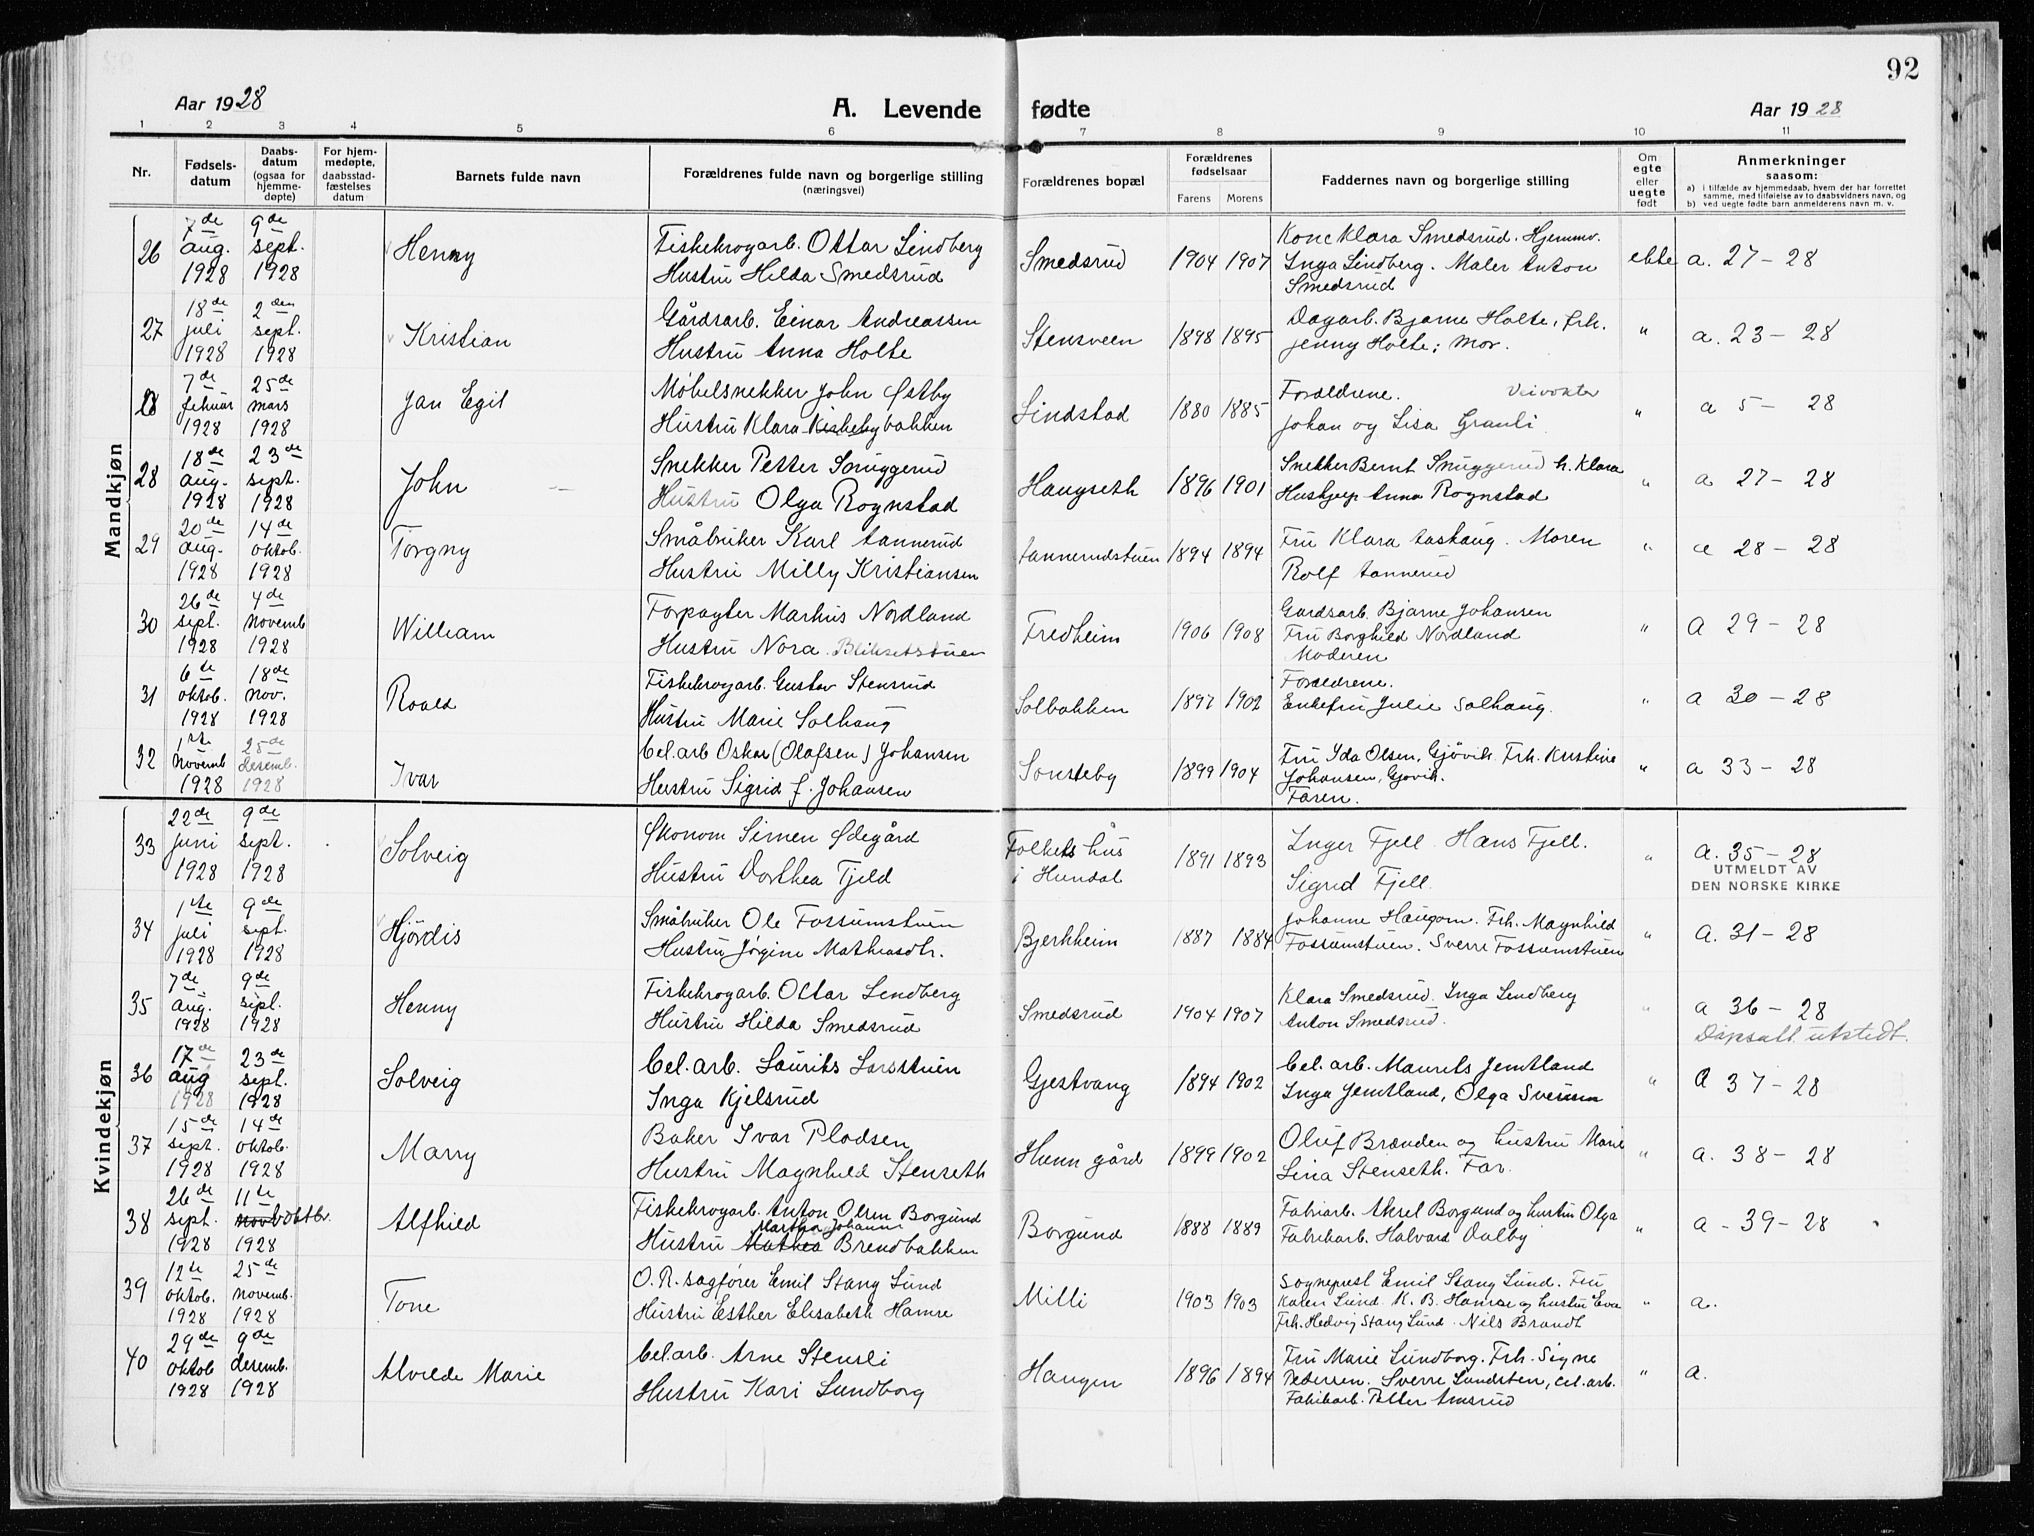 92
Aar 1928
A. Levende fødte
Aar 1928
1 2 3 4 5 6 7 8 9 10 11
Nr. Fødsels-datum Daabs-datum (ogsaa for hjemme-døpte) For hjem-medøpte, daabsstad-fæstelses datum Barnets fulde navn Forældrenes fulde navn og borgerlige stilling (næringsvei) Forældrenes bopæl Forældrenes fødselsaar Farens Morens Faddernes navn og borgerlige stilling Om egte eller uegte født Anmerkninger saasom:
a) i tilfælde av hjemmedaab, hvem der har forrettet samme, med tilføielse av to daabsvidners navn, og
b) ved uegte fødte barn anmelderens navn m. v.
Mandkjøn
26 7de aug. 1928 9de sept. 1928 Henny Fiskekrogarb. Ottar Lindberg Hustru Hilda Smedsrud Smedsrud 1904 1907 Kone Klara Smedsrud. Hjemmv. Inga Lindberg. Maler Anton Smedsrud ekte a. 27 - 28
27 18de juli 1928 2den sept. 1928 Kristian Gårdsarb. Einar Andreassen Hustru Anna Holte Stensveen 1898 1895 Dagarb. Bjarne Holte, frk. Jenny Holte; Mor. " a. 23 - 28
28 7de februar 1928 25de mars 1928 Jan Egil Møbelsnekker John Østby Hustru Klara Kiskebybakken Lindstad 1880 1885 Foreldrene. Veivokter Johan og Lisa Granli " a 5 - 28
28 18de aug. 1928 23de sept. 1928 John Snekker Petter Snuggerud Hustru Olga Rognstad Haugseth 1896 1901 Snekker Bernt Snuggerud h. Klara Huskjep Anna Rognstad " a 27 - 28
29 20de aug. 1928 14de oktob. 1928 Torgny Småbruker Karl Aannerud Hustru Milly Kristiansen Aannerudstuen 1894 1894 Fru Klara Aaskaug. Moren Rolf Aannerud " a 28 - 28
30 26de sept. 1928 4de novemb 1928 William Forpagter Markus Nordland Hustru Nora Bliksetstuen Fredheim 1906 1908 Gardsarb. Bjarne Johansen Fru Borghild Nordland Moderen " A 29 - 28
31 6te oktob. 1928 18de nov. 1928 Roald Fiskekrogarb. Gustav Stensrud Hustru Marie Solhaug Solbakken 1897 1902 Foreldrene. Enkefru Julie Solhaug. " a 30 - 28
32 1ste novemb 1928 25de desemb. 1928 Ivar Cel.arb Oskar (Olafsen) Johansen Hustru Sigrid f. Johansen Sønsteby 1899 1904 Fru Ida Olsen, Gjøvik. Frk. Kristine Johansen, Gjøvik. Faren. " a 33 - 28
Kvindekjøn
33 22de juni 1928 9de sept. 1928 Solveig Økonom Simen Ødegård Hustru Dorthea Fjeld Folkets hus i Hundal 1891 1893 Inger Fjell. Hans Fjell. Sigrid Fjell. " a. 35 - 28
UTMELDT AV DEN NORSKE KIRKE
34 1ste juli 1928 9de sept. 1928 Hjördis Småbruker Ole Fossumstuen Hustru Jørgine Mathiasdtr. Bjerkheim 1887 1884 Johanne Haugom. Frk. Magnhild Fossumstuen. Sverre Fossumstuen " a. 31 - 28
35 7de aug. 1928 9de sept. 1928 Henny Fiskekrogarb. Ottar Lindberg Hustru Hilda Smedsrud Smedsrud 1904 1907 Klara Smedsrud. Inga Lindberg Anton Smedsrud. " a 36 - 28
Dåpsatt. utstedt.
36 17de aug 1928 23de sept. 1928 Solveig Cel. arb. Laurits Larsstuen Inga Kjelsrud Gjestvang 1894 1902 Cel. arb. Maurits Jemtland Inga Jemtland, Olga Sveum " a 37 - 28
37 15de sept. 1928 14de oktob. 1928 Marry Baker Ivar Plodsen Hustru Magnhild Stenseth Hunn gård 1899 1902 Oluf Brænden og hustru Marie Lina Stenseth. Far. " a. 38 - 28
38 26de sept. 1928 11te novb oktbr. 1928 Alfhild Fiskekrogarb. Anton Olsen Borgund Hustru Mathea Martha Johanne Brendbakken Borgund 1888 1889 Fabrarb. Aksel Borgund og hustru Olga Fabrikarb. Halvard Dalby " a - 39 - 28
39 12te oktob. 1928 25de novemb. 1928 Tone O.R. sagfører Emil Stang Lund Hustru Esther Elisabeth Hamre Milli 1903 1903 Sogneprest Emil Stang Lund. Fru Karen Lund. K. B. Hamre og hustru Eva Frk. Hedvig Stang Lund. Nils Brandt " a.
40 29de oktob 1928 9de desemb. 1928 Alvilde Marie Cel.arb. Arne Stensli Hustru Kari Lundborg Haugen 1896 1894 Fru Marie Lundborg. Frk. Signe Pedersen. Sverre Lundsten, cel. arb. Fabikarb. Petter Amsrud " a.